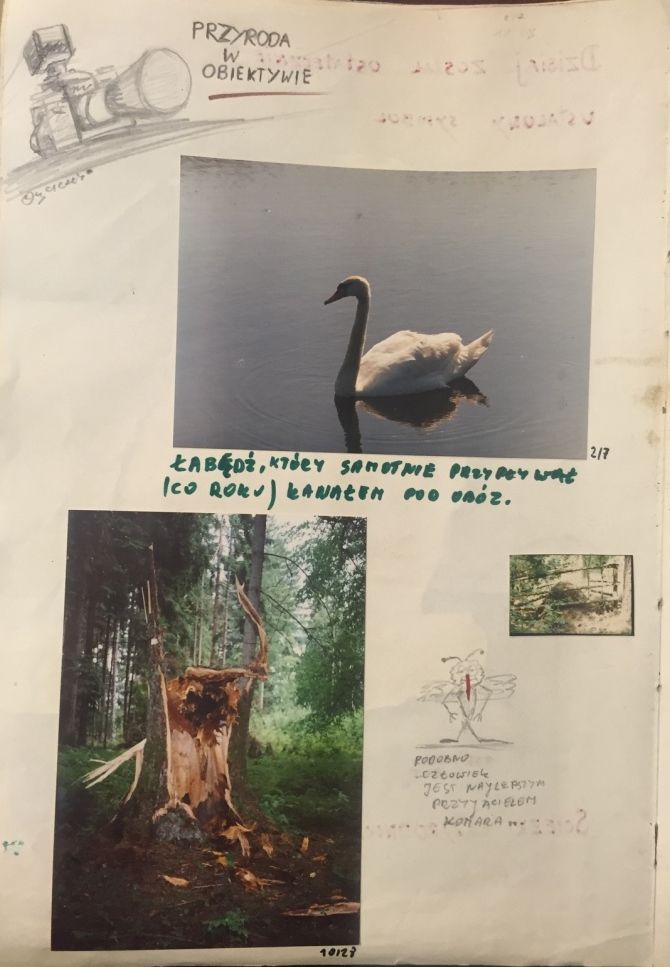 PRZYRODA
W
OBIEKTYWIE
2/7
ŁABĘDŹ, KTÓRY SAMOTNIE PRZYPŁYWAŁ
(CO ROKU) KANAŁEM POD OBÓZ.
PODOBNO
CZŁOWIEK
JEST NAJLEPSZYM
PRZYJACIELEM
KOMARA
10/28